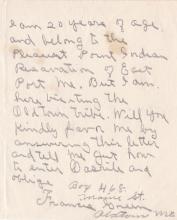 I am 20 years of age
and belong to the
Pleasant Point Indian
Resavation of East
Port Me. But I am
here visiting the
Oldtown tribe. Will you
kindly favor me by
answering this letter
and tell me just how
to enter Dastrile and
oblige
Box 468.
Maine St.
Francis
Oldtown Me.